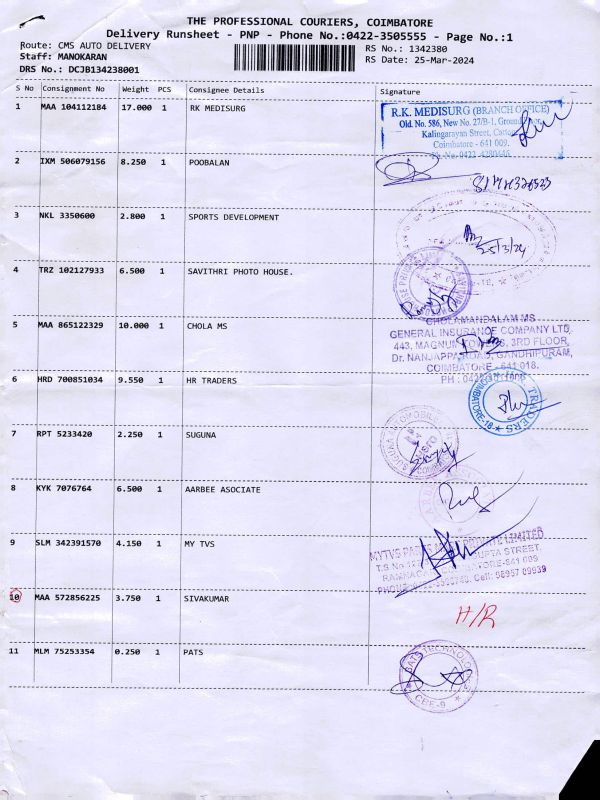 THE PROFESSIONAL COURIERS, COIMBATORE
Delivery Runsheet - PNP - Phone No.:0422-3505555 - Page No.:1
Route: CMS AUTO DELIVERY
Staff: MANOKARAN
DRS No.: DCJB134238001
RS No.: 1342380
RS Date: 25-Mar-2024
S No Consignment No Weight PCS Consignee Details Signature
1 MAA 104112184 17.000 1 RK MEDISURG
R.K. MEDISURG (BRANCH OFFICE)
Old. No. 586, New No. 27/B-1, Ground Floor,
Kalingarayan Street,
Coimbatore - 641 009.
2 IXM 506079156 8.250 1 POOBALAN
3 NKL 3350600 2.800 1 SPORTS DEVELOPMENT
25/3/24
4 TRZ 102127933 6.500 1 SAVITHRI PHOTO HOUSE.
5 MAA 865122329 10.000 1 CHOLA MS
CHOLAMANDALAM MS
GENERAL INSURANCE COMPANY LTD,
443, MAGNUM 3RD FLOOR,
Dr. NANJAPPA ROAD, GANDHIPURAM,
COIMBATORE - 641 018.
6 HRD 700851034 9.550 1 HR TRADERS
TRADERS
COIMBATORE-18
7 RPT 5233420 2.250 1 SUGUNA
8 KYK 7076764 6.500 1 AARBEE ASOCIATE
9 SLM 342391570 4.150 1 MY TVS
PRIVATE LIMITED
GUPTA STREET
10 MAA 572856225 3.750 1 SIVAKUMAR
H/R
11 MLM 75253354 0.250 1 PATS
TECHNOLOGY
CBE-9